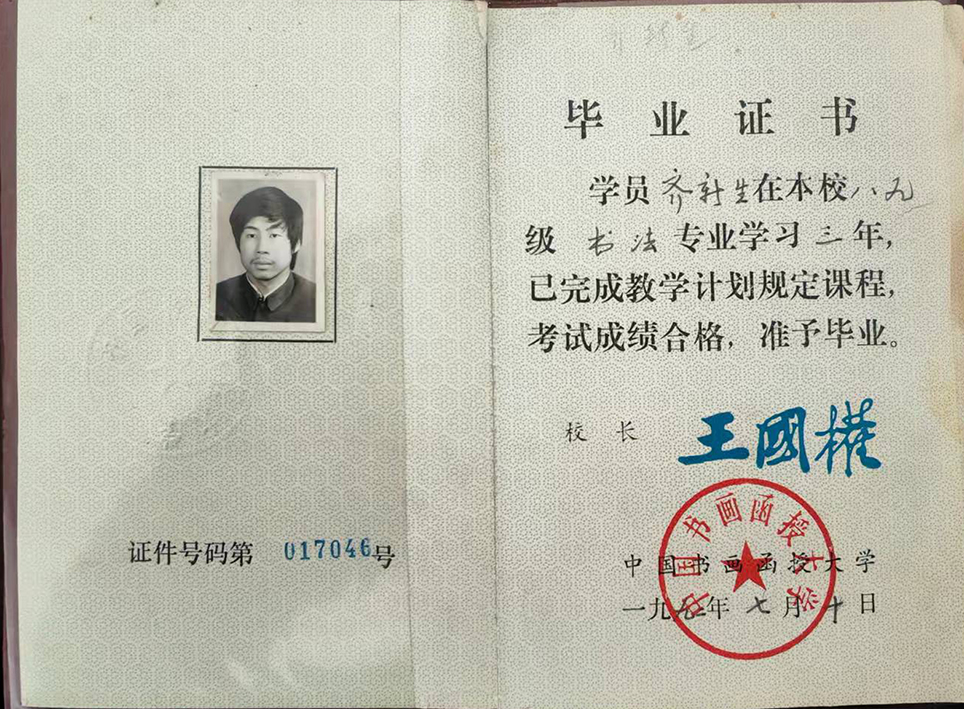 证件号码第 017046号
毕业证书
学员齐新生在本校八九
级 书法 专业学习三年，
已完成教学计划规定课程，
考试成绩合格，准予毕业。
校长 王國權
中国书画函授大学
中国书画函授大学
一九九二年七月十日